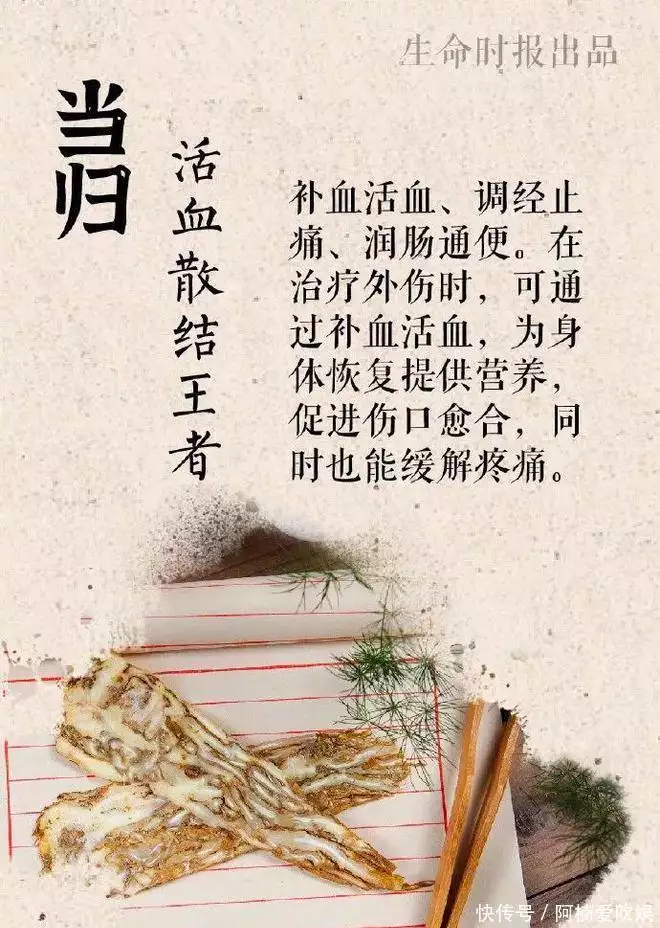 生命时报出品
当归
活血散结王者
补血活血、调经止
痛、润肠通便。在
治疗外伤时，可通
过补血活血，为身
体恢复提供营养，
促进伤口愈合，同
时也能缓解疼痛。
快传号／阿楠爱吹娱